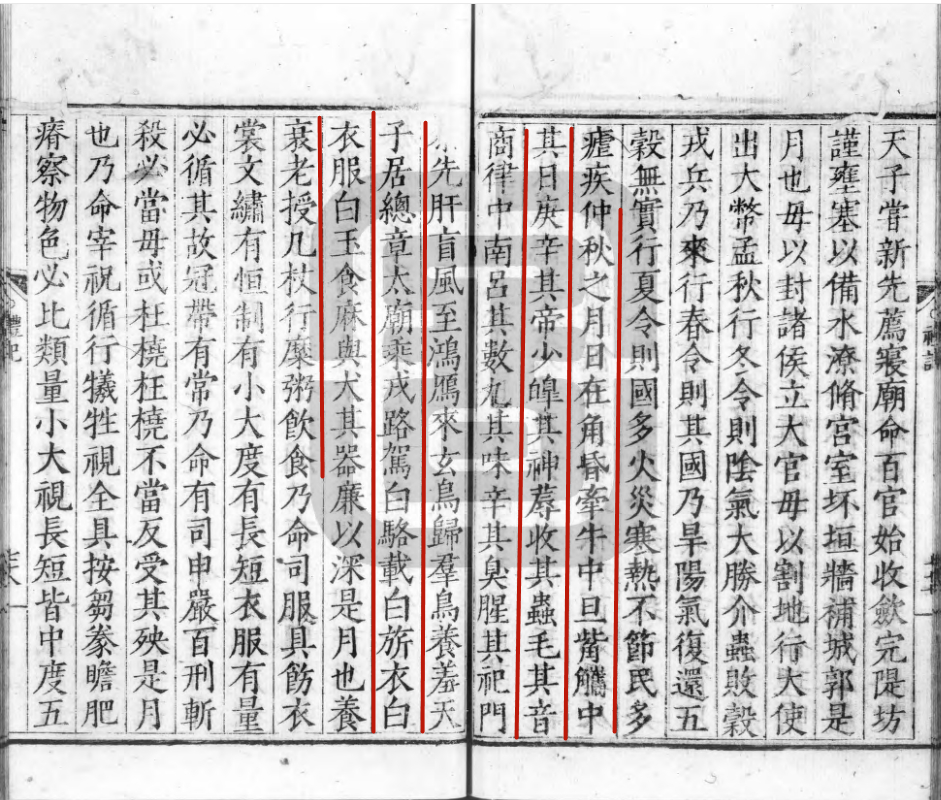 天子嘗新先薦寢廟命百官始收斂完隄坊
謹壅塞以備水潦脩宮室坏垣牆補城郭是
月也毋以封諸侯立大官毋以割地行大使
出大幣孟秋行冬令則陰氣大勝介蟲敗穀
戎兵乃來行春令則其國乃旱陽氣復還五
穀無實行夏令則國多火災寒熱不節民多
瘧疾仲秋之月日在角昏牽牛中旦觜觿中
其日庚辛其帝少皞其神蓐收其蟲毛其音
商律中南呂其數九其味辛其臭腥其祀門
先肝盲風至鴻鴈來玄鳥歸羣鳥養羞天
子居總章太廟乘戎路駕白駱載白旂衣白
衣服白玉食麻與犬其器廉以深是月也養
衰老授几杖行糜粥飲食乃命司服具飭衣
裳文繡有恒制有小大度有長短衣服有量
必循其故冠帶有常乃命有司申嚴百刑斬
殺必當毋或枉橈枉橈不當反受其殃是月
也乃命宰祝循行犧牲視全具按芻豢瞻肥
瘠察物色必比類量小大視長短皆中度五
禮記